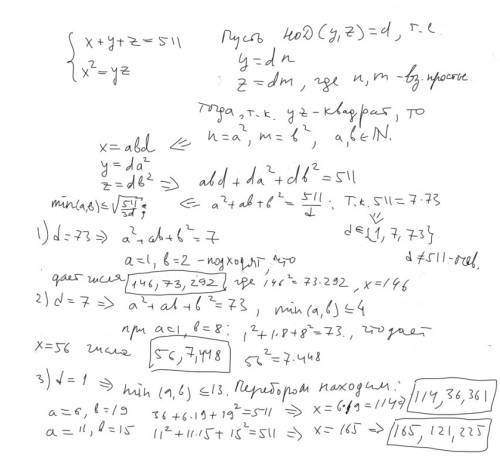 { x+y+z=511
x²=yz
Пусть НОД(y,z)=d, т.е.
y=dn
z=dm, где n,m - вз. простые
тогда, т.к. yz-квадрат, то
n=a², m=b², a,b∈ℕ.
x=abd ⇐
y=da²
z=db² ⇒ abd+da²+db²=511
min(a,b)≤√(511/3d); ⇐ a²+ab+b²=511/d; т.к. 511=7·73
⇓
d∈{1,7,73}
d≠511-очев.
1) d=73 ⇒ a²+ab+b²=7
a=1, b=2 - подходят, что
дает числа 146,73,292, где 146²=73·292, x=146
2) d=7 ⇒ a²+ab+b²=73, min(a,b)≤4
при a=1, b=8: 1²+1·8+8²=73, что дает
x=56 числа 56,7,448 56²=7·448
3) d=1 ⇒ min(a,b)≤13. Перебором находим:
a=6, b=19 36+6·19+19²=511 ⇒ x=6·19=114⇒ 114,36,361
a=11, b=15 11²+11·15+15²=511 ⇒ x=165 ⇒ 165,121,225